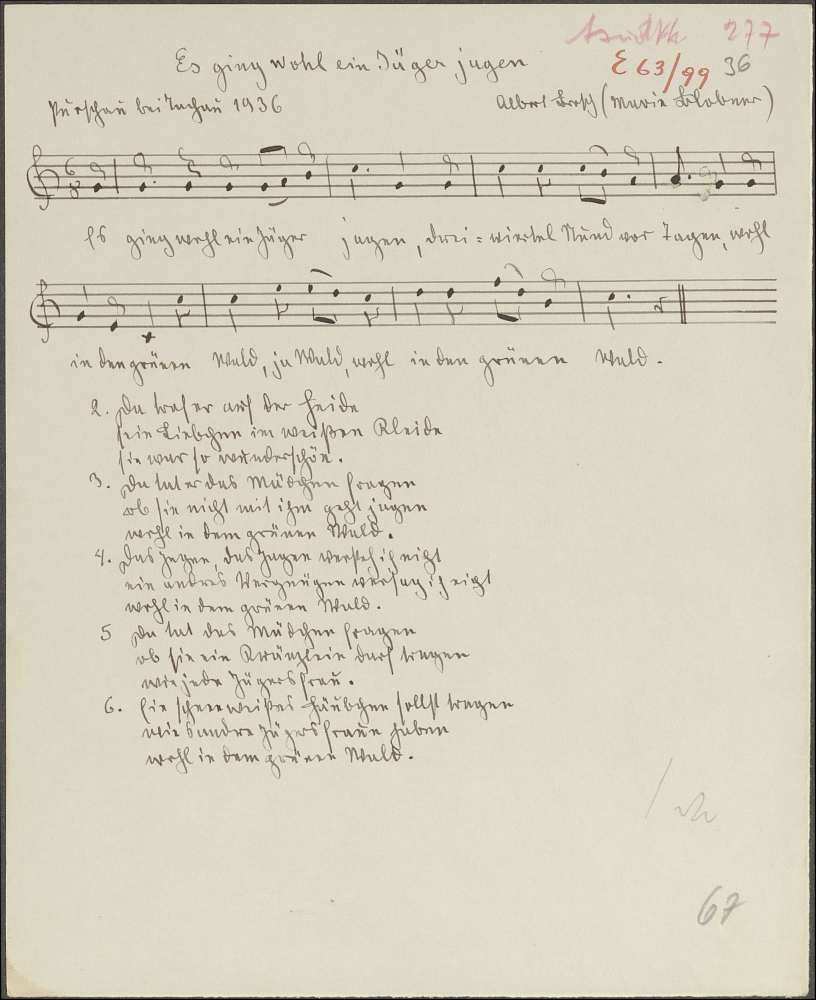 277
Es ging wohl ein Jäger jagen
E 63/99 36
Purschau bei Tachau 1936
Albert Brosch (Marie Klobner)
6
8
Es ging wohl ein Jäger jagen, drei=viertel Stund vor Tagen, wohl
in den grünen Wald, ja Wald, wohl in den grünen Wald.
2. Da traf er auf der Heide
sein Liebchen im weißen Kleide
sie war so wunderschön.
3. Da tat er das Mädchen fragen
ob sie nicht mit ihm geht jagen
wohl in dem grünen Wald.
4. Das Jagen, das Jagen versteh ich nicht
ein andres Vergnügen versag ich nicht
wohl in dem grünen Wald.
5 Da tat das Mädchen fragen
ob sie ein Kränzlein darf tragen
wie jede Jägersfrau.
6. Ein schneeweißes Häubchen sollst tragen
wie's andre Jägersfraun haben
wohl in dem grünen Wald.
67